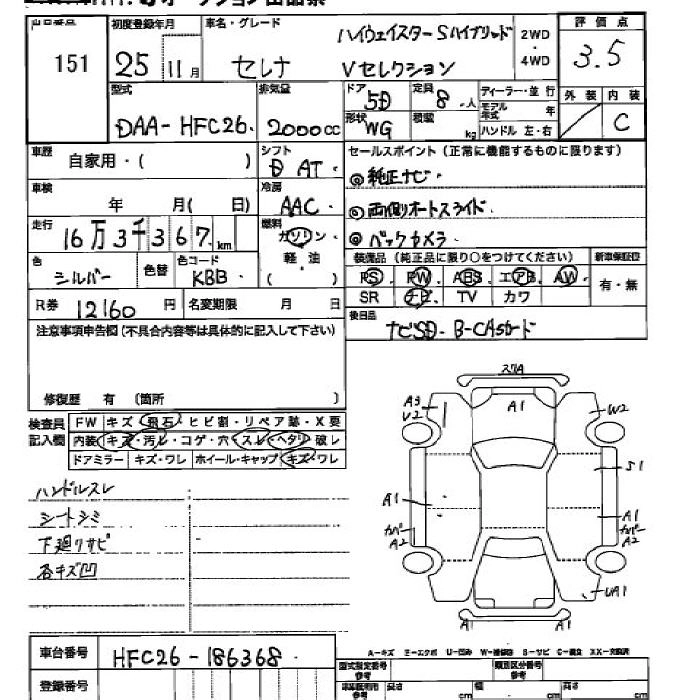 出品番号 初度登録年月 車名・グレード ハイウェイスターSハイブリッド 2WD ・ 4WD 評価点
151 25年 11月 セレナ Vセレクション 3.5
型式 排気量 ドア 5D 定員 8.人 ディーラー・並行 外装 内装
DAA-HFC26. 2000cc 形状 WG 積載 kg モデル年式 年 ハンドル 左・右 C
車歴 自家用・( ) シフト D AT・ セールスポイント(正常に機能するものに限ります)
◎純正ナビ・
車検 年 月( 日) 冷房 AAC・ ◎両側オートスライド・
走行 16万3千367.km 燃料 ガソリン・ ◎バックカメラ・
軽・油
( )
色 シルバー 色替 色コード KBB・ 装備品(純正品に限り○をつけてください) 新車保証書
PS PW ABS エアB AW 有・無
SR ナビ TV カワ
R券 12160 円 名変期限 月 日 後日品
ナビSD・B-CASカード
注意事項申告欄(不具合内容等は具体的に記入して下さい)
修復歴 有 (箇所 )
検査員記入欄 FW キズ・飛石・ヒビ割・リペア跡・X要
内装 キズ・汚レ・コゲ・穴・スレ・ヘタリ・破レ
ドアミラー キズ・ワレ ホイール・キャップ キズ・ワレ
ハンドルスレ
シートシミ
下廻りサビ
各キズ凹
スリA
A3
V2
A1
W2
S1
A1
カバー
A2
A1
カバー
A2
UA1
A1
A1
A-キズ E-エクボ U-凹み W-補修跡 B-サビ C-腐食 XX-交換済
車台番号 HFC26-186368.
型式指定番号 参考 類別区分番号 参考
登録番号 長さ cm 幅 cm 高さ cm